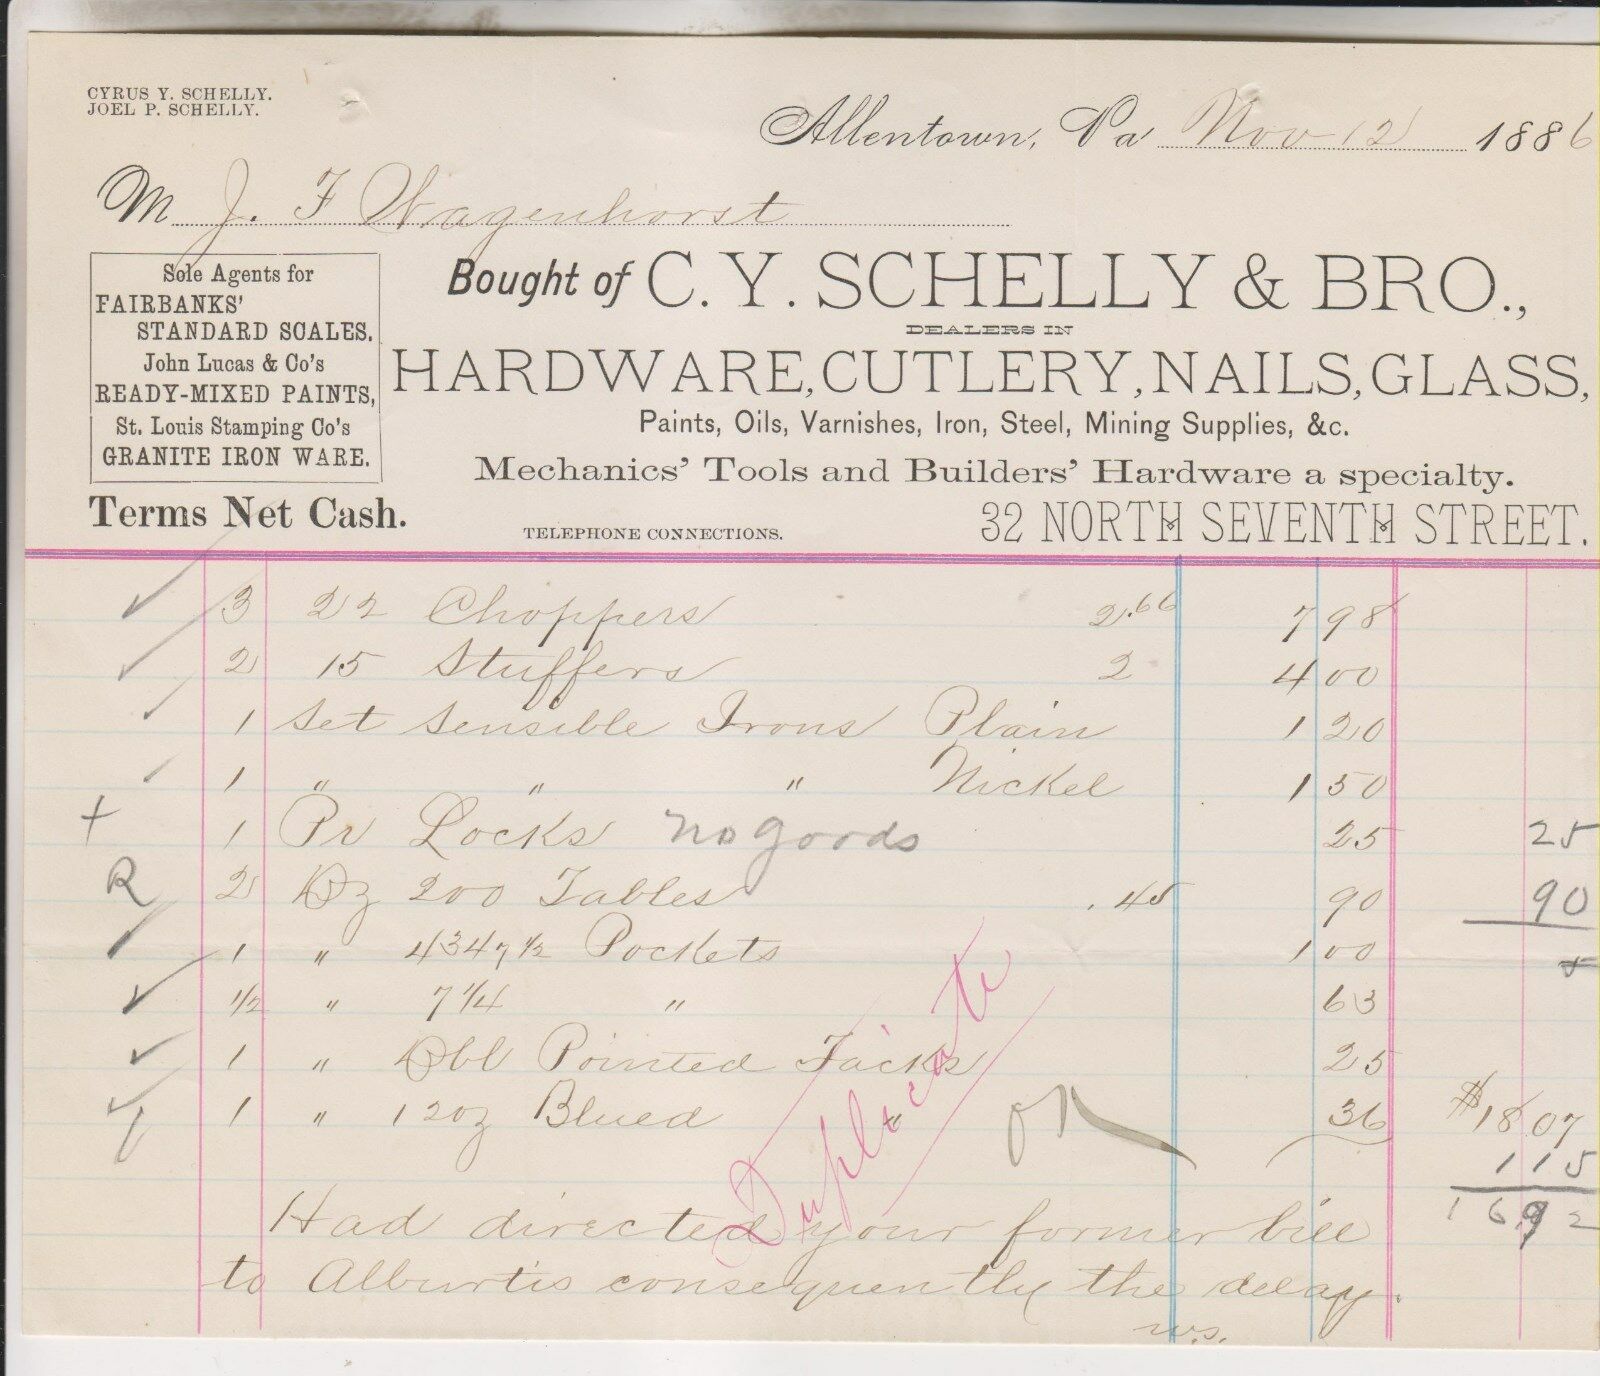 CYRUS Y. SCHELLY.
JOEL P. SCHELLY.
Allentown, Pa Nov 12 1886
M J. F Wagenhorst
Sole Agents for
FAIRBANKS'
STANDARD SCALES.
John Lucas & Co's
READY-MIXED PAINTS,
St. Louis Stamping Co's
GRANITE IRON WARE.
Terms Net Cash.
Bought of C. Y. SCHELLY & BRO.,
DEALERS IN
HARDWARE, CUTLERY, NAILS, GLASS,
Paints, Oils, Varnishes, Iron, Steel, Mining Supplies, &c.
Mechanics' Tools and Builders' Hardware a specialty.
TELEPHONE CONNECTIONS.
32 NORTH SEVENTH STREET.
3 22 Choppers 2.66 7 98
2 15 Stuffers 2 4 00
1 Set Sensible Irons Plain 1 20
1 " " " Nickel 1 50
+ 1 Pr Locks no goods 25 25
R 2 Dz 200 Tables .45 90 90
1 " 434 7 1/2 Pockets 1 00
1/2 " 7 1/4 " 63
1 " Dbl Pointed Tacks 25
1 " 12oz Blued " 36 $18 07
OK
1 15
16,92
Duplicate
Had directed your former bill
to Alburtis consequently the delay.
w.s.